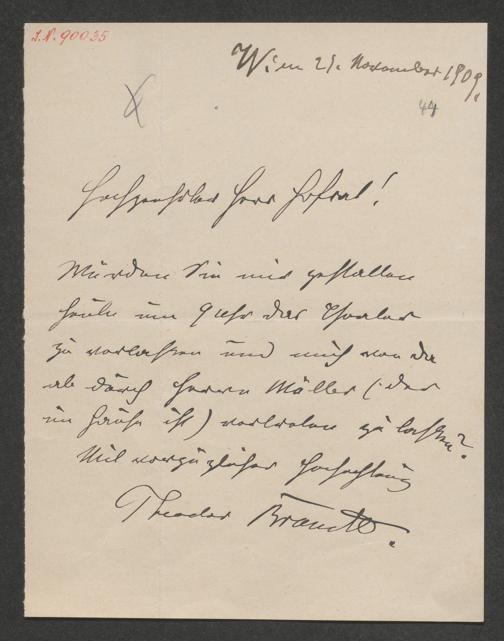 I.N. 90035
Wien 21. November 1909.
44
Hochgeehrter Herr Hofrat!
Würden Sie mir gestatten
heute um 9 Uhr das Theater
zu verlassen und mich von da
ab durch Herrn Müller (: der
im Hause ist) vertreten zu lassen?
Mit vorzüglicher Hochachtung
Theodor Brandt.